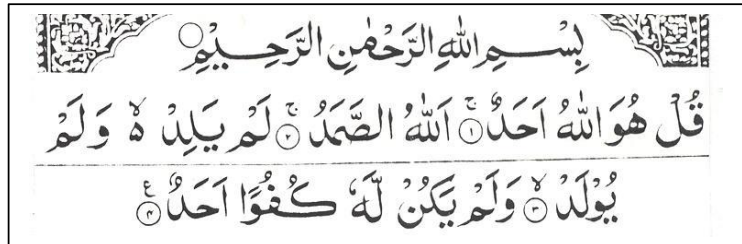 بِسْمِ اللهِ الرَّحْمٰنِ الرَّحِيْمِ
قُلْ هُوَ اللهُ اَحَدٌ ۚ ﴿۱﴾ اَللهُ الصَّمَدُ ۚ ﴿۲﴾ لَمْ يَلِدْ ۙ۬ وَلَمْ
يُوْلَدْ ۙ ﴿۳﴾ وَلَمْ يَكُنْ لَّهٗ كُفُوًا اَحَدٌ ﴿۴﴾ ع